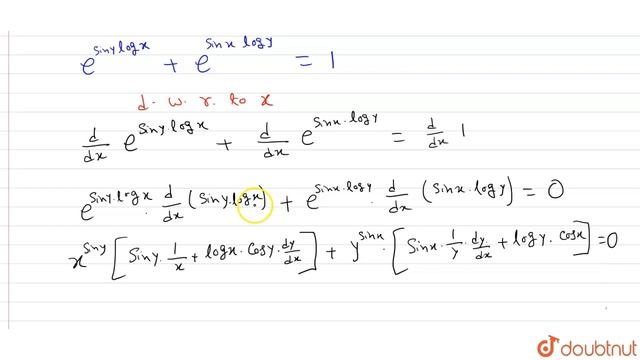 e^{siny logx} + e^{sinx logy} = 1
d. w. r. to x
d/dx e^{siny.logx} + d/dx e^{sinx.logy} = d/dx 1
e^{siny.logx} . d/dx (siny.logx) + e^{sinx.logy} . d/dx (sinx.logy) = 0
x^{siny} [siny. 1/x + logx. cosy. dy/dx] + y^{sinx} . [sinx. 1/y . dy/dx + logy. cosx] = 0
doubtnut